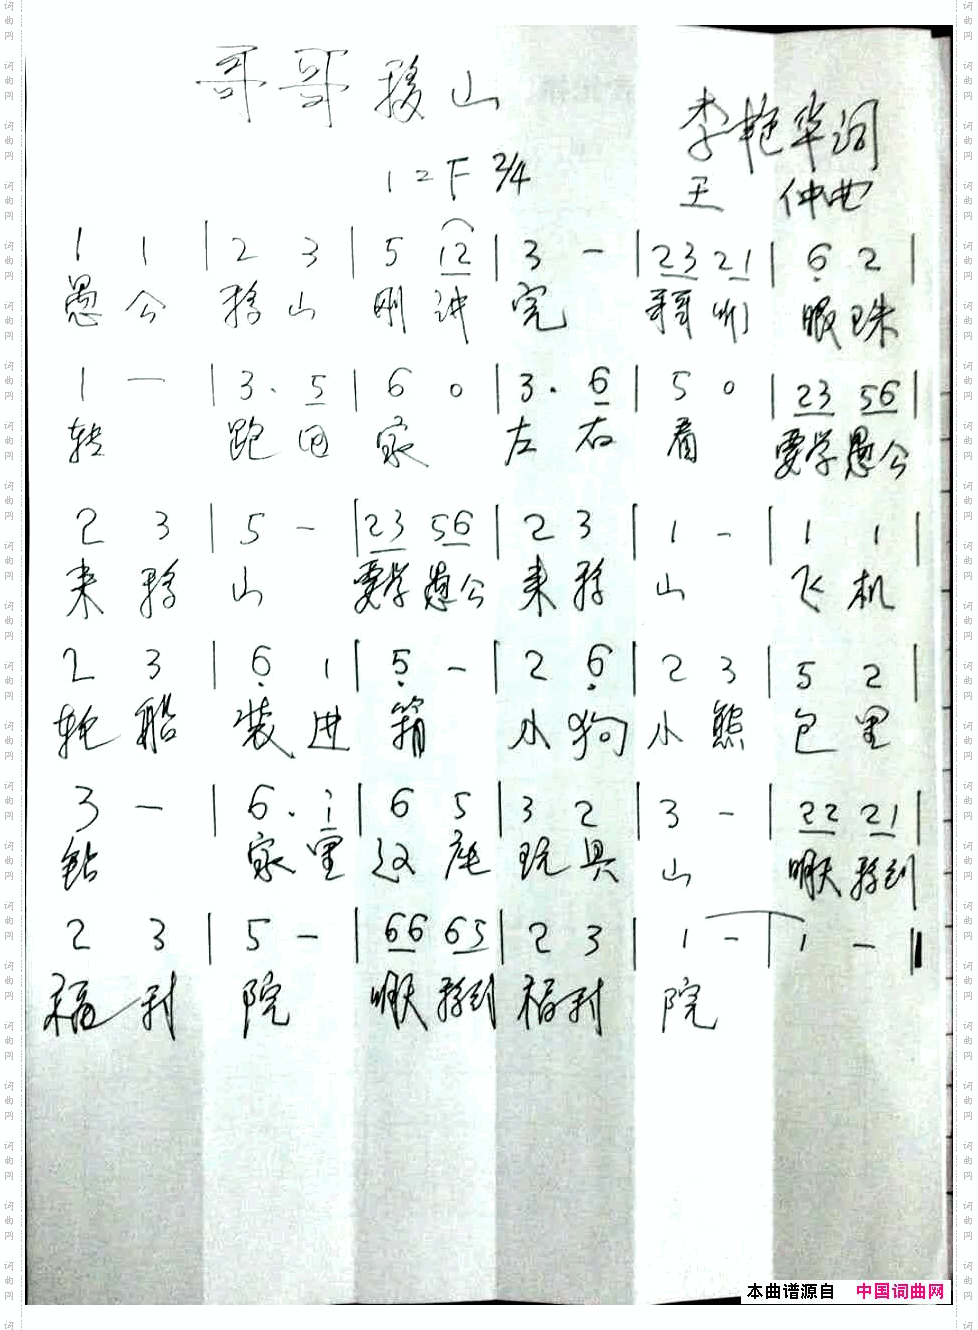 哥哥移山
李艳华词
1=F 2/4
王 仲曲
1 1 | 2 3 | 5 12 | 3 - | 23 21 | 6 2 |
愚 公 移 山 刚 讲 完 哥哥 听 眼 珠
1 - | 3. 5 | 6 0 | 3. 6 | 5 0 | 23 56 |
转 跑 回 家 左 右 看 要学 愚公
2 3 | 5 - | 23 56 | 2 3 | 1 - | 1 1 |
来 移 山 要学 愚公 来 移 山 飞 机
2 3 | 6 1 | 5 - | 2 6 | 2 3 | 5 2 |
轮 船 装 进 箱 小 狗 小 熊 包 里
3 - | 6. i | 6 5 | 3 2 | 3 - | 22 21 |
钻 家 里 这 座 玩 具 山 明天 移到
2 3 | 5 - | 66 65 | 2 3 | 1 - | 1 - ‖
福 利 院 明天 移到 福 利 院
本曲谱源自 中国词曲网